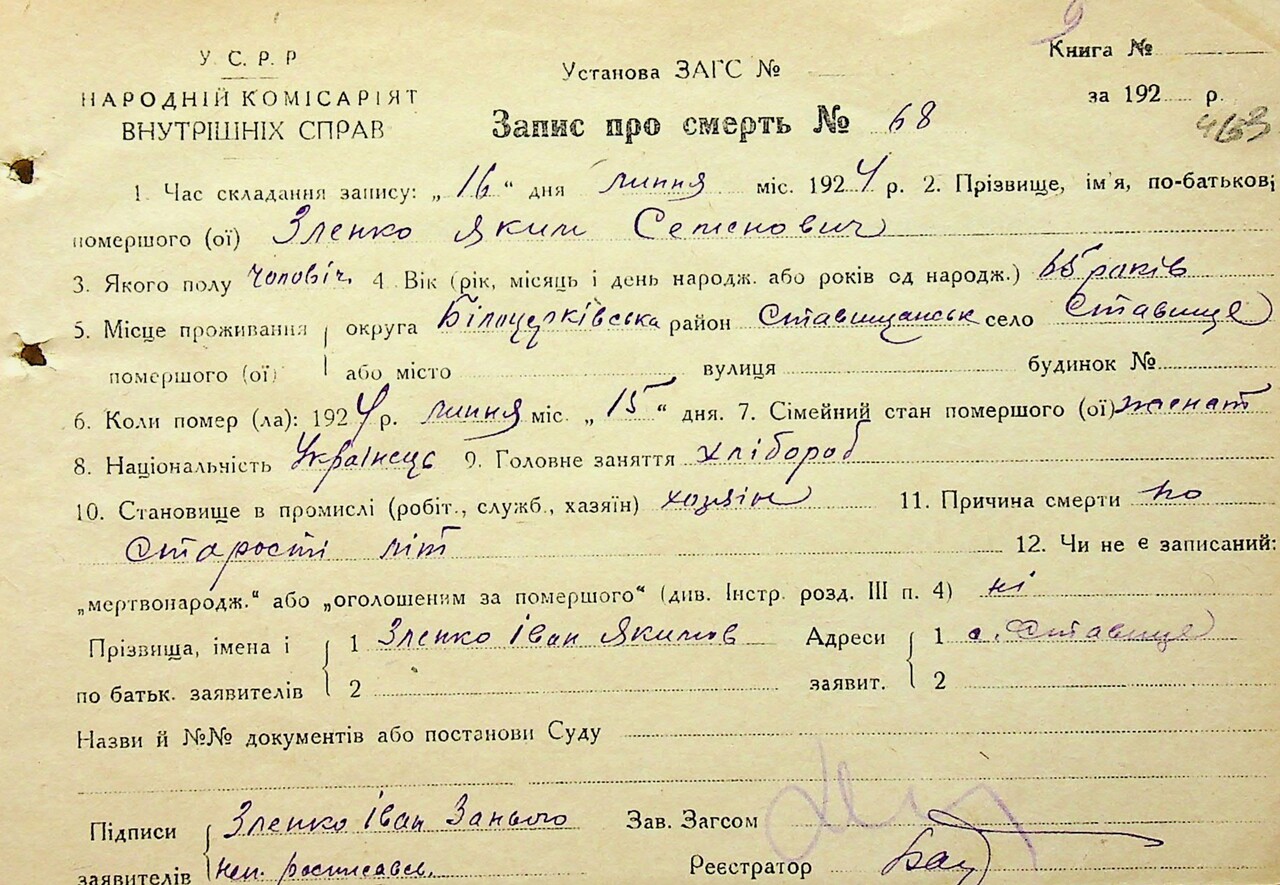 У. С. Р. Р
НАРОДНІЙ КОМІСАРІЯТ
ВНУТРІШНІХ СПРАВ
Установа ЗАГС №
Книга №
за 192 р.
Запис про смерть № 68
1. Час складання запису: „ 16 “ дня липня міс. 1924 р. 2. Прізвище, ім'я, по-батькові
помершого (ої) Зленко Яким Семенович
3. Якого полу чоловіч. 4. Вік (рік, місяць і день народж. або років од народж.) 65 років
5. Місце проживання округа Білоцерківська район Ставищанськ село Ставище
помершого (ої) або місто вулиця будинок №
6. Коли помер (ла): 1924 р. липня міс. „ 15 “ дня. 7. Сімейний стан помершого (ої) женат
8. Національність Українець 9. Головне заняття хлібороб
10. Становище в промислі (робіт., служб., хазяїн) хозяін 11. Причина смерти по
Старості літ 12. Чи не є записаний:
„мертвонародж.“ або „оголошеним за помершого“ (див. Інстр. розд. III п. 4) ні
Прізвища, імена і 1 Зленко Іван Якимов Адреси 1 с. Ставище
по батьк. заявителів 2 заявит. 2
Назви й №№ документів або постанови Суду
Підписи Зленко Іван Занього Зав. Загсом
заявителів неп. росписавсь. Реєстратор